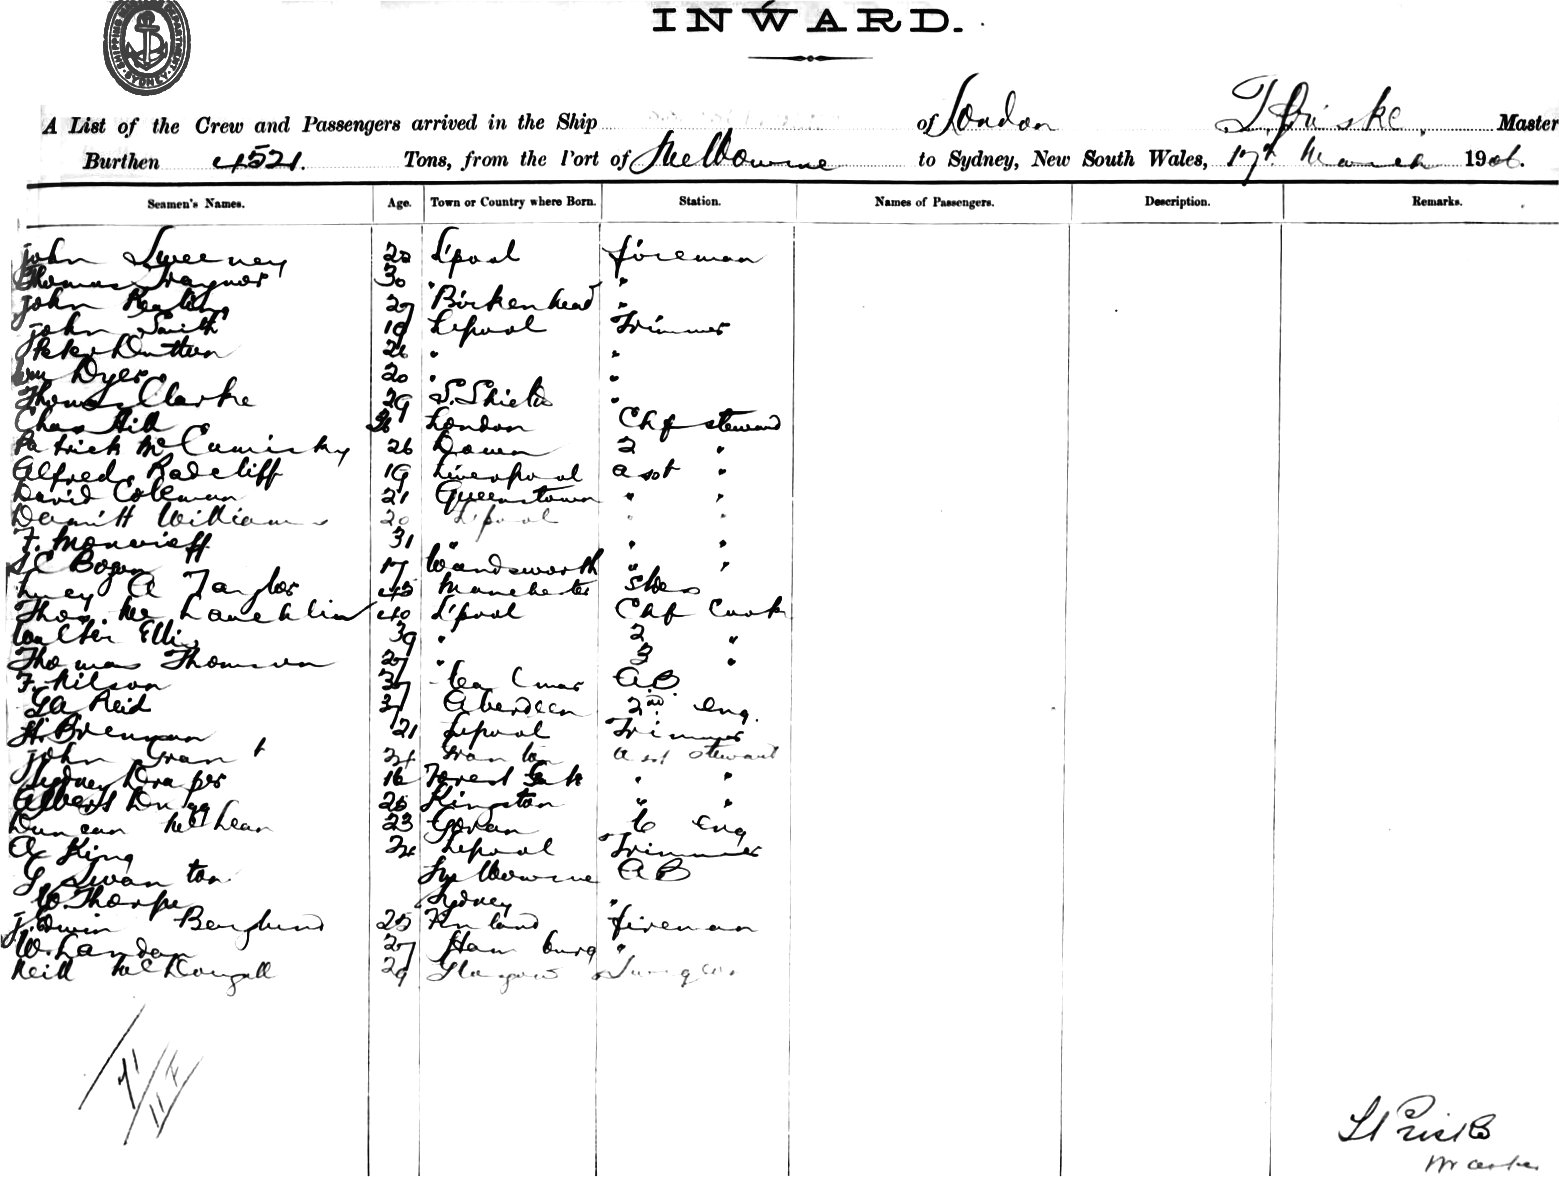 SHIPPING DEPARTMENT SYDNEY
INWARD.
A List of the Crew and Passengers arrived in the Ship of London Master
Burthen 4521. Tons, from the Port of Melbourne to Sydney, New South Wales, 17th March 1906.
Seamen's Names. Age. Town or Country where Born. Station. Names of Passengers. Description. Remarks.
John Sweeney 20 L'pool fireman
Thomas Traynor 30 " "
John 27 Birkenhead "
John Smith 19 Lepool Trimmer
Peter Dutton " "
Wm Dyer 20 " "
Thomas Clarke 29 S. Shields "
Chas Hill London Chf steward
Patrick McCumisky 26 Down 2 "
Alfred Radcliff 19 Liverpool asst "
David Coleman 21 Queenstown " "
Williams 20 L'pool " "
F. Moncrieff 31 " " "
Bogan 17 Wandsworth " "
Lucy A Taylor 45 Manchester Stdess
Thos. McLauchlin 40 L'pool Chf Cook
Walter Ellis 39 " 2 "
Thomas Thomson 27 " 3 "
F. Nilson 37 AB
GA Reid 37 Aberdeen 2nd eng.
H. Brennan 21 Lepool Trimmer
John Grant 24 Granton asst steward
Sydney Draper 16 Forest Gate " "
Albert Dugg Kingston " "
Duncan McLean 23 Govan 6 eng
A King 24 Lepool Trimmer
G. Swanton Melbourne AB
W. Thorpe Sydney "
J. Edwin Berglund 25 Finland fireman
W. Landau 27 Hamburg "
Neill McDougall 29 Glasgow
Master